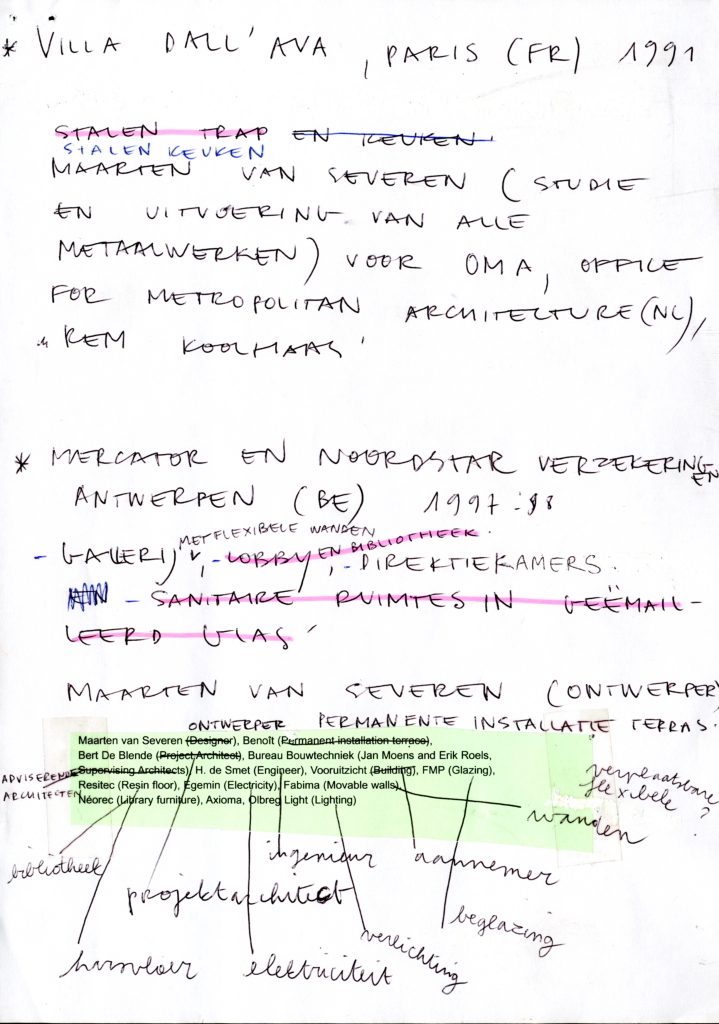 * VILLA DALL'AVA, PARIS (FR) 1991
STALEN TRAP EN KEUKEN
STALEN KEUKEN
MAARTEN VAN SEVEREN (STUDIE
EN UITVOERING VAN ALLE
METAALWERKEN) VOOR OMA, OFFICE
FOR METROPOLITAN ARCHITECTURE (NL),
REM KOOLHAAS
* MERCATOR EN NOORDSTAR VERZEKERINGEN
ANTWERPEN (BE) 1997-98
MET FLEXIBELE WANDEN
- GALLERIJ, - LOBBY EN BIBLIOTHEEK, - DIREKTIEKAMERS.
- SANITAIRE RUIMTES IN GEËMAIL-
LEERD GLAS
MAARTEN VAN SEVEREN (ONTWERPER)
ONTWERPER PERMANENTE INSTALLATIE TERRAS.
Maarten van Severen (Designer), Benoît (Permanent installation terrace),
Bert De Blende (Project Architect), Bureau Bouwtechniek (Jan Moens and Erik Roels,
ADVISERENDE ARCHITECTEN
Supervising Architects), H. de Smet (Engineer), Vooruitzicht (Building), FMP (Glazing),
Resitec (Resin floor), Egemin (Electricity), Fabima (Movable walls),
Néorec (Library furniture), Axioma, Olbreg Light (Lighting)
verplaatsbare
flexibele ?
wanden
bibliotheek
ingenieur
aannemer
projektarchitect
beglazing
verlichting
harsvloer
elektriciteit